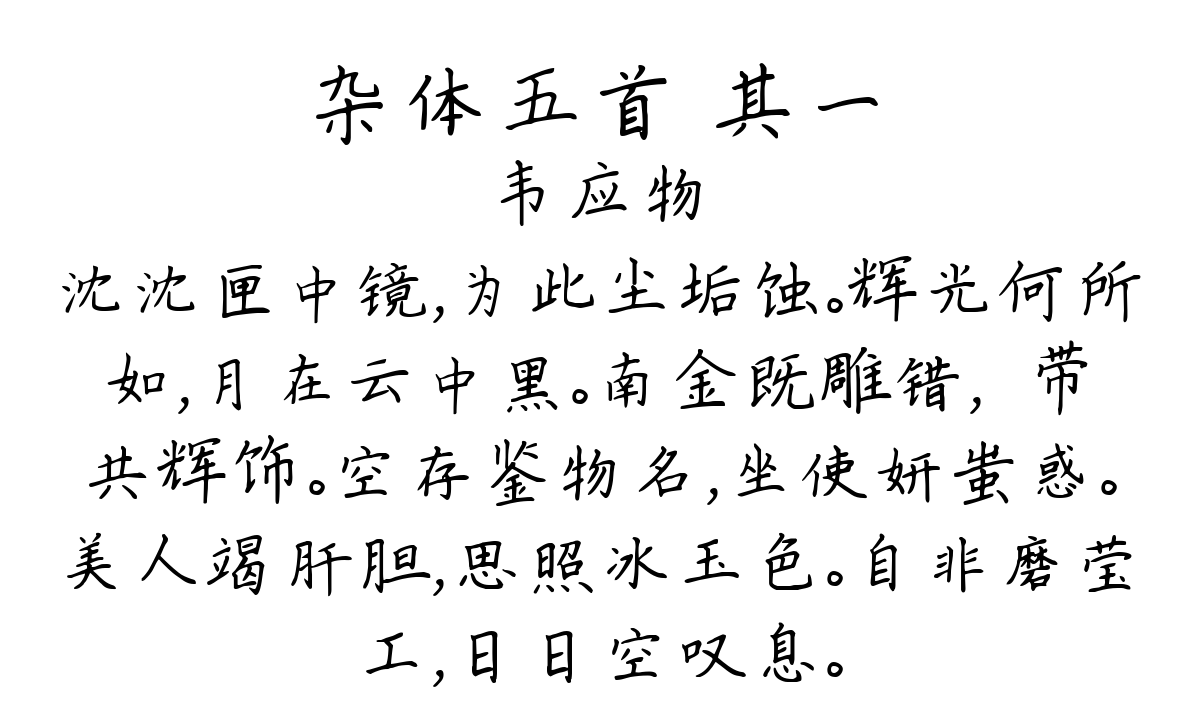 杂体五首 其一
韦应物
沈沈匣中镜,为此尘垢蚀。辉光何所
如,月在云中黑。南金既雕错，带
共辉饰。空存鉴物名,坐使妍蚩惑。
美人竭肝胆,思照冰玉色。自非磨莹
工,日日空叹息。